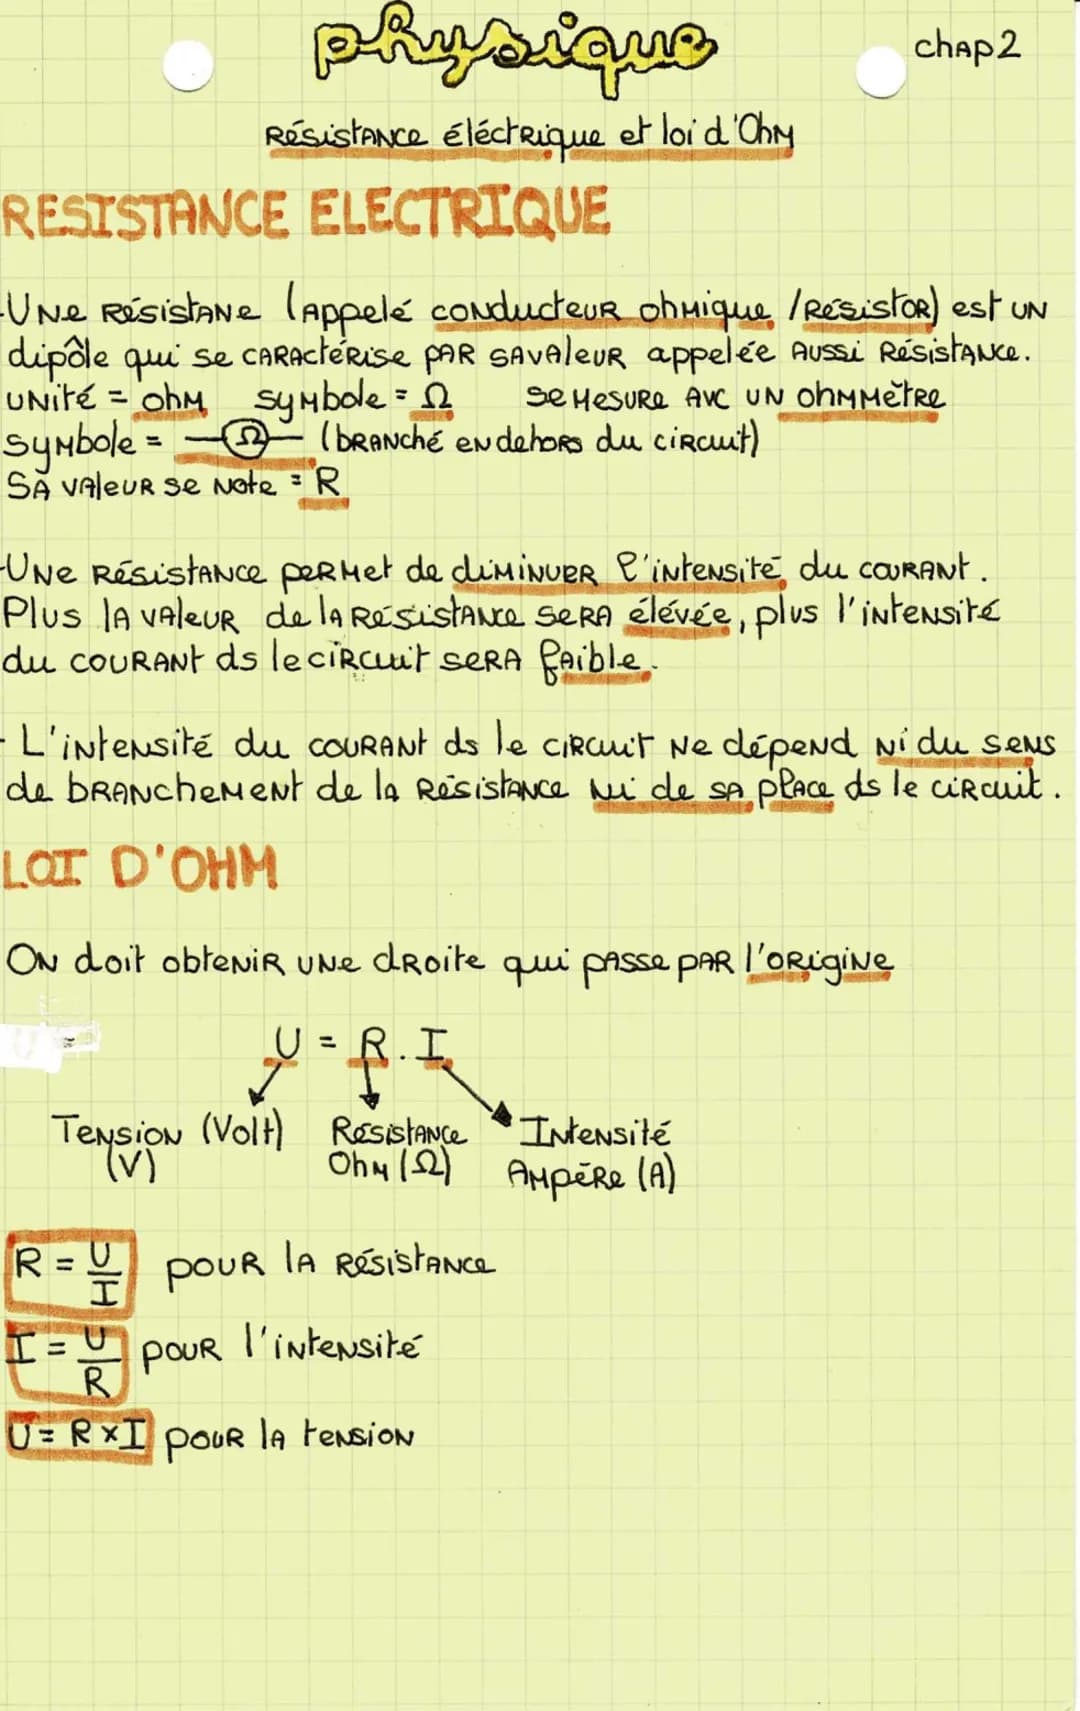 physique
chAp 2
Résistance éléctrique et loi d'Ohm
RESISTANCE ELECTRIQUE
-Une résistane (appelé conducteur ohmique /résistor) est un
dipôle qui se caractérise par sa valeur appelée aussi résistance.
unité = ohm symbole = Ω se mesure avc un ohmmètre
symbole = Ω (branché en dehors du circuit)
Sa valeur se note = R
-Une résistance permet de diminuer l'intensité du courant.
Plus la valeur de la résistance sera élévée, plus l'intensité
du courant ds le circuit sera faible.
- L'intensité du courant ds le circuit ne dépend ni du sens
de branchement de la résistance ni de sa place ds le circuit.
LOI D'OHM
On doit obtenir une droite qui passe par l'origine
U = R . I
Tension (Volt) Résistance Intensité
(V) Ohm (Ω) Ampère (A)
R = U/I pour la résistance
I = U/R pour l'intensité
U = R x I pour la tension